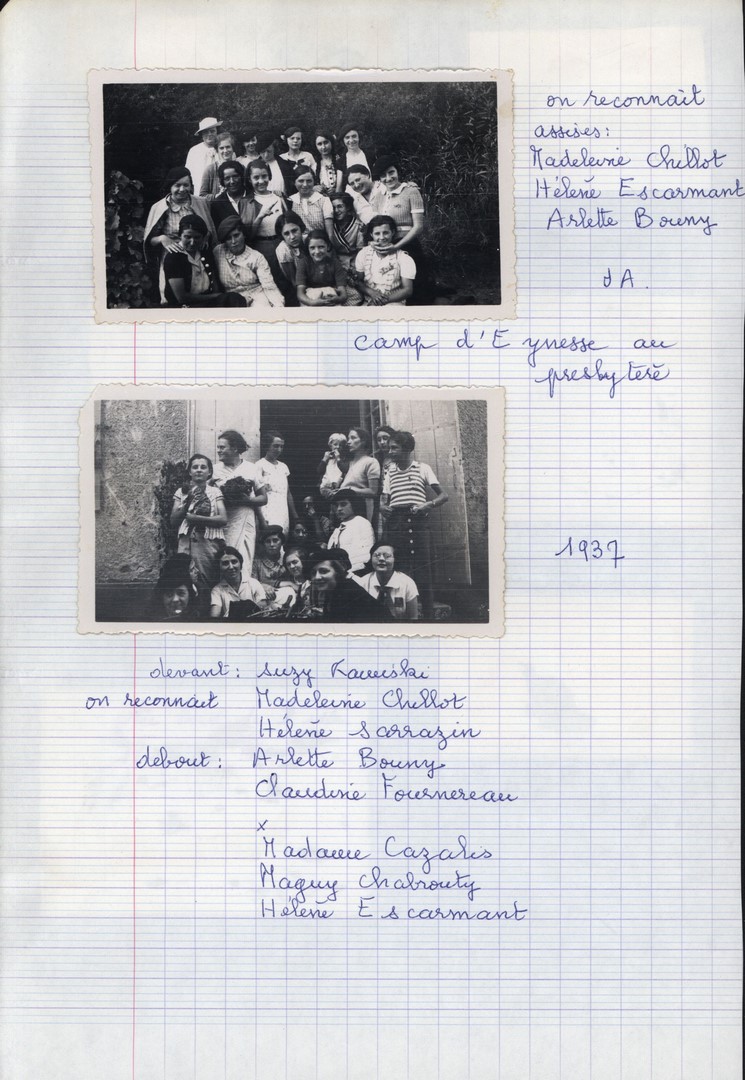 on reconnait
assises:
Madeleine Chillot
Hélène Escarmant
Arlette Bouny
JA.
camp d'Eynesse au
presbytère
1937
devant: Suzy Kaweski
on reconnait Madeleine Chillot
Hélène Sarrazin
debout: Arlette Bouny
Claudine Fournereau
x
Madame Cazalis
Maguy Chabrouty
Hélène Escarmant